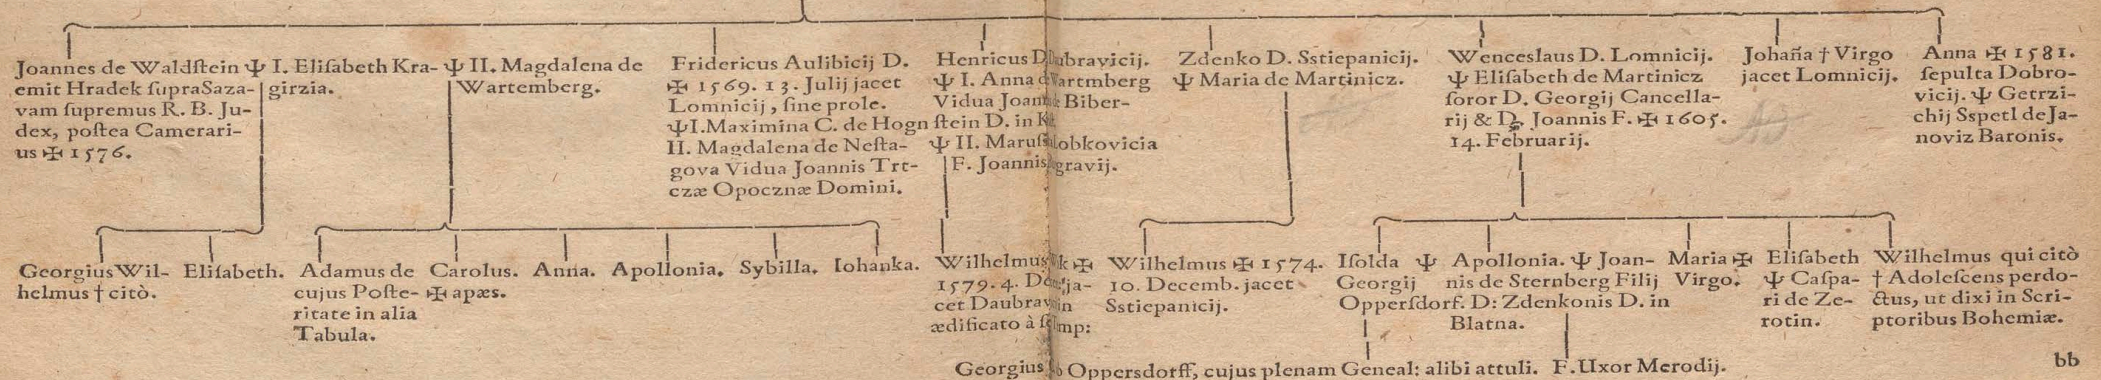 Joannes de Waldſtein Ψ I. Eliſabeth Kra-
emit Hradek ſupraSaza-
girzia.
vam ſupremus R. B. Ju-
dex, poſtea Camerari-
us ✠ 1576.
Ψ II. Magdalena de
Wartemberg.
Fridericus Aulibicij D.
✠ 1569. 13. Julij jacet
Lomnicij, ſine prole.
ΨI.Maximina C. de Hogn
II. Magdalena de Neſta-
gova Vidua Joannis Trt-
czæ Opocznæ Domini.
Henricus D
Ψ I. Anna
Wartmberg
Vidua
Biber-
ſtein D. in
Ψ II.
Lobkovicia
F. Joannis
gravij.
Zdenko D. Sstiepanicij.
Ψ Maria de Martinicz.
Wenceslaus D. Lomnicij.
Ψ Eliſabeth de Martinicz
ſoror D. Georgij Cancella-
rij & D. Joannis F. ✠ 1605.
14. Februarij.
Johan̄a † Virgo
jacet Lomnicij.
Anna ✠ 1581.
ſepulta Dobro-
vicij. Ψ Getrzi-
chij Sspetl deJa-
noviz Baronis.
GeorgiusWil-
helmus † citò.
Eliſabeth.
Adamus de
cujus Poſte-
ritate in alia
Tabula.
Carolus.
✠ apæs.
Anna.
Apollonia.
Sybilla.
Iohanka.
Wilhelmus
✠
1579. 4.
ja-
cet
in
ædificato à
Imp:
Wilhelmus ✠ 1574.
10. Decemb. jacet
Sstiepanicij.
Iſolda Ψ
Georgij
Opperſdorf.
Apollonia. Ψ Joan-
nis de Sternberg Filij
D: Zdenkonis D. in
Blatna.
Maria ✠
Virgo.
Eliſabeth
Ψ Caſpa-
ri de Ze-
rotin.
Wilhelmus qui citò
† Adoleſcens perdo-
ctus, ut dixi in Scri-
ptoribus Bohemiæ.
Georgius
Oppersdorff, cujus plenam Geneal: alibi attuli.
F. Uxor Merodij.
bb